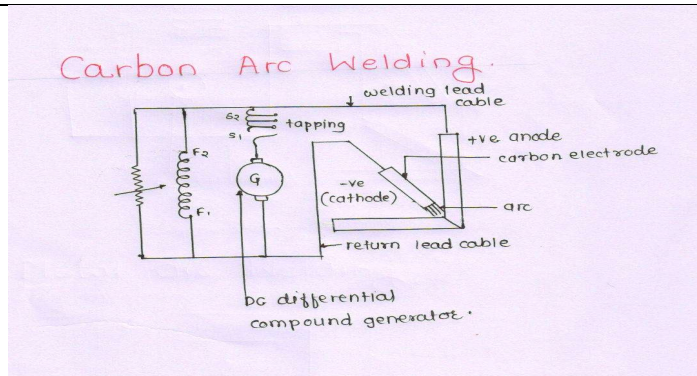 Carbon Arc Welding.
welding lead
cable
S2
tapping
S1
+ve anode
carbon electrode
F2
G
-ve
(cathode)
arc
F1
return lead cable
DC differential
compound generator.